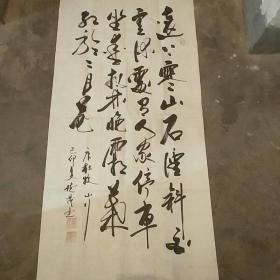 遠上寒山石徑斜白
雲深處有人家停車
坐愛楓林晚霜葉
紅於二月花
唐杜牧山行
己卯夏